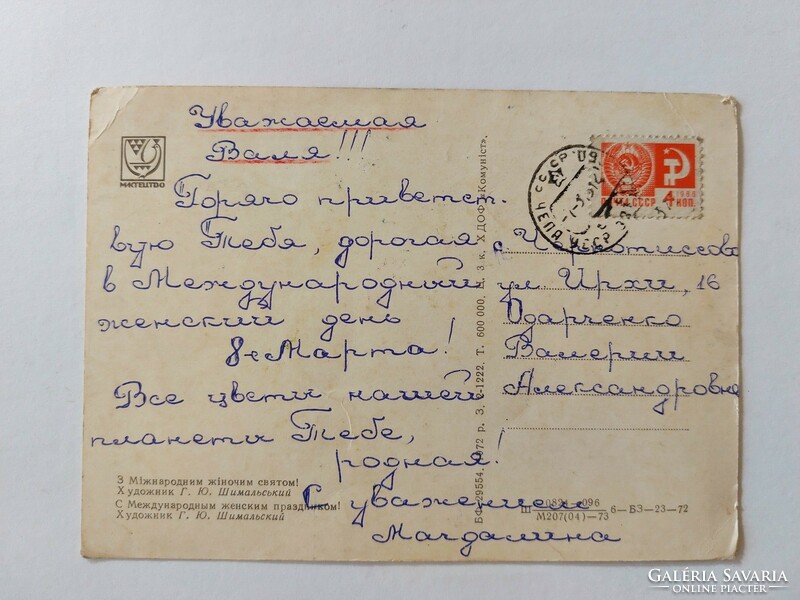 Уважаемая
Валя!!!
Горячо приветст.
вую Тебя, дорогая
в Международный
женский день
8е Марта!
Все цветы нашей
планеты Тебе,
родная!
С уважением
Магдалина
МИСТЕЦТВО
З Міжнародним жіночим святом!
Художник Г. Ю. Шимальський
С Международным женским праздником!
Художник Г. Ю. Шимальский
БФ 29554. 1972 р. З. 2-1222. Т. 600 000. Ц. 3 к. ХДОФ «Комуніст».
ПОЧТА СССР 4 КОП.
1966
с. Чернотиссово
ул. Ирхи, 16
Одарченко
Валерии
Александровне
М207(04)—73
6—БЭ—23—72
GALÉRIA SAVARIA
ONLINE PIACTÉR